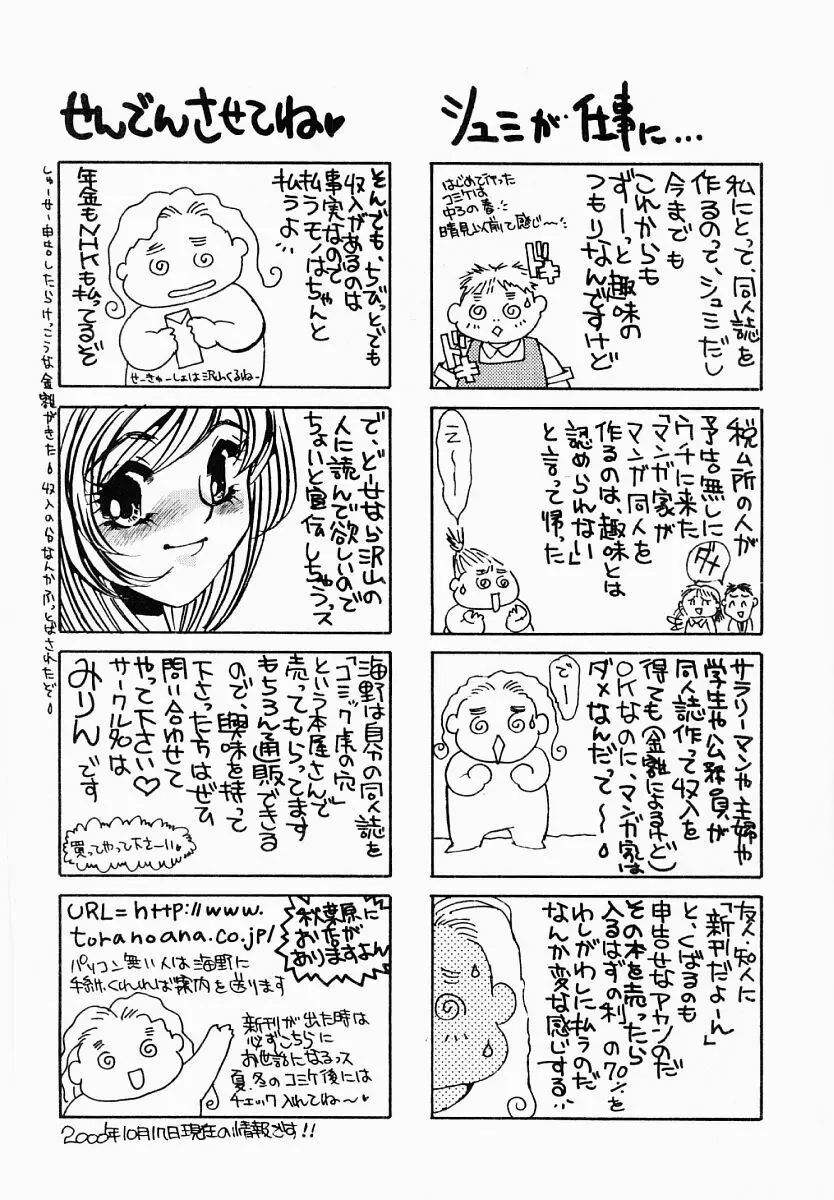 シュミが仕事に…
私にとって、同人誌を
作るのって、シュミだし
今までも
これからも
ずーっと趣味の
つもりなんですけど
はじめて行った
コミケは
中3の春
晴見以前て感じ〜
税ム所の人が
予告無しに
ウチに来た
「マンガ家が
マンガ同人を
作るのは、趣味とは
認められない」
と言って帰った
ダメ
えー
サラリーマンや主婦や
学生や公務員が
同人誌作って収入を
得ても(金額によるけど)
OKなのに、マンガ家は
ダメなんだって〜
でー
友人・知人に
「新刊だよーん」
と、くばるのも
申告せなアカンのだ
その本を売ったら
入るはずの利 の70%を
わしがわしに払うのだ
なんか変な感じする…
せんでんさせてね♥
そんでも、ちびっとでも
収入があるのは
事実なので
払うモノはちゃんと
払うよ…
年金もNHKも払ってるぞ
せーきゅーしょは沢山くるねー
しゅーせー申告したらけっこうな金額がきた 収入の らなんかふっとばされたぞ
で、ど せなら沢山の
人に読んで欲しいので
ちょいと宣伝しちゃうっス
海野は自分の同人誌を
「コミック虎の穴」
という本屋さんで
売ってもらってます
もちろん通販できる
ので、興味を持って
下さった方はぜひ
問い合わせて
やって下さい♡
サークル名は
みりんです
買ってやって下さーい
URL=http://www.
toranoana.co.jp/
秋葉原に
お店が
ありますよん
パソコン無い人は海野に
手紙くれれば案内を送ります
新刊が出た時は
必ずこちらに
お世話になるっス
夏、冬のコミケ後には
チェック入れてね〜
2000年10月17日現在の情報です!!